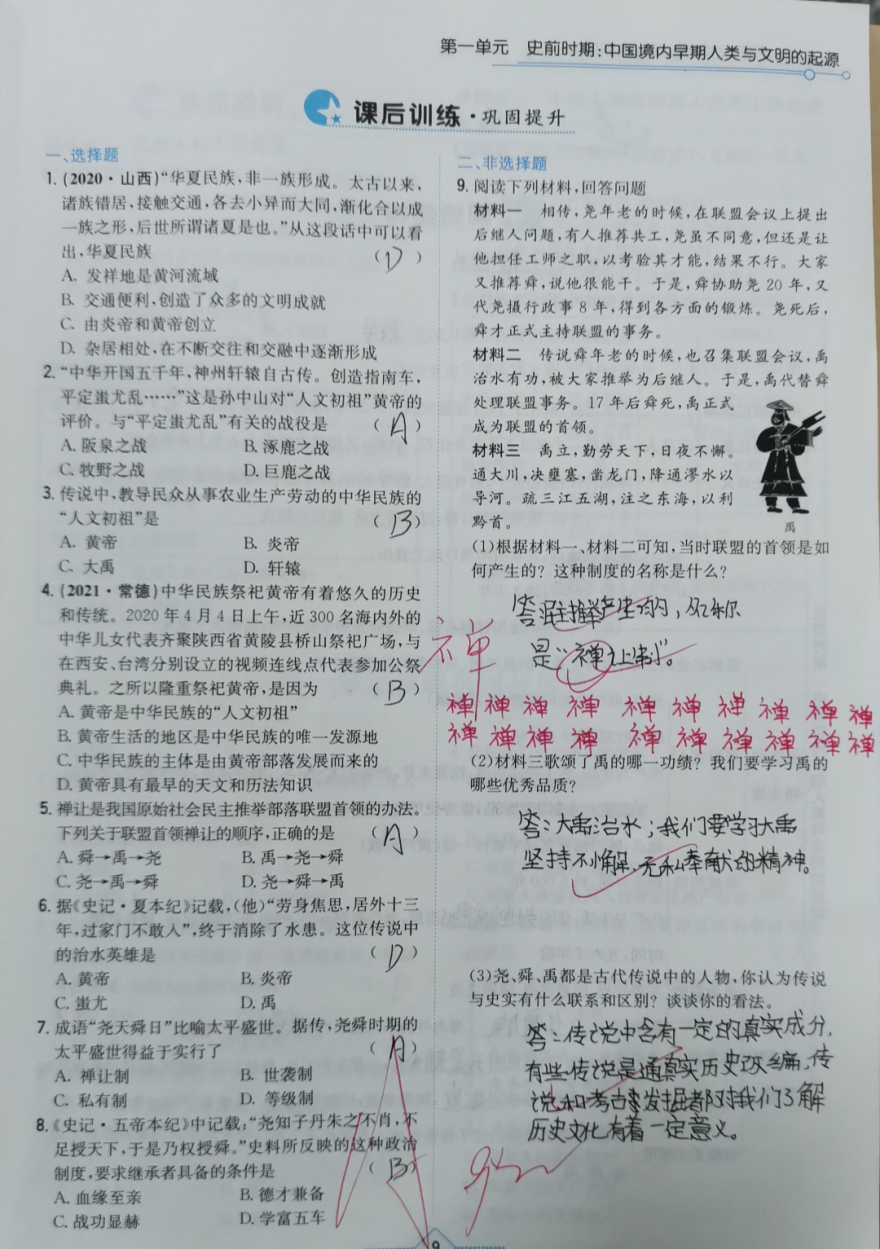 第一单元 史前时期:中国境内早期人类与文明的起源
课后训练·巩固提升
一、选择题
1.(2020·山西)“华夏民族,非一族形成。太古以来,
诸族错居,接触交通,各去小异而大同,渐化合以成
一族之形,后世所谓诸夏是也。”从这段话中可以看
出,华夏民族 (D)
A. 发祥地是黄河流域
B. 交通便利,创造了众多的文明成就
C. 由炎帝和黄帝创立
D. 杂居相处,在不断交往和交融中逐渐形成
2.“中华开国五千年,神州轩辕自古传。创造指南车,
平定蚩尤乱……”这是孙中山对“人文初祖”黄帝的
评价。与“平定蚩尤乱”有关的战役是 (A)
A. 阪泉之战 B. 涿鹿之战
C. 牧野之战 D. 巨鹿之战
3. 传说中,教导民众从事农业生产劳动的中华民族的
“人文初祖”是 (B)
A. 黄帝 B. 炎帝
C. 大禹 D. 轩辕
4.(2021·常德)中华民族祭祀黄帝有着悠久的历史
和传统。2020年4月4日上午,近300名海内外的
中华儿女代表齐聚陕西省黄陵县桥山祭祀广场,与
在西安、台湾分别设立的视频连线点代表参加公祭
典礼。之所以隆重祭祀黄帝,是因为 (B)
A. 黄帝是中华民族的“人文初祖”
B. 黄帝生活的地区是中华民族的唯一发源地
C. 中华民族的主体是由黄帝部落发展而来的
D. 黄帝具有最早的天文和历法知识
5. 禅让是我国原始社会民主推举部落联盟首领的办法。
下列关于联盟首领禅让的顺序,正确的是 (A)
A. 舜→禹→尧 B. 禹→尧→舜
C. 尧→禹→舜 D. 尧→舜→禹
6. 据《史记·夏本纪》记载,(他)“劳身焦思,居外十三
年,过家门不敢入”,终于消除了水患。这位传说中
的治水英雄是 (D)
A. 黄帝 B. 炎帝
C. 蚩尤 D. 禹
7. 成语“尧天舜日”比喻太平盛世。据传,尧舜时期的
太平盛世得益于实行了 (A)
A. 禅让制 B. 世袭制
C. 私有制 D. 等级制
8.《史记·五帝本纪》中记载:“尧知子丹朱之不肖,不
足授天下,于是乃权授舜。”史料所反映的这种政治
制度,要求继承者具备的条件是 (B)
A. 血缘至亲 B. 德才兼备
C. 战功显赫 D. 学富五车
二、非选择题
9. 阅读下列材料,回答问题
材料一 相传,尧年老的时候,在联盟会议上提出
后继人问题,有人推荐共工,尧虽不同意,但还是让
他担任工师之职,以考验其才能,结果不行。大家
又推荐舜,说他很能干。于是,舜协助尧20年,又
代尧摄行政事8年,得到各方面的锻炼。尧死后,
舜才正式主持联盟的事务。
材料二 传说舜年老的时候,也召集联盟会议,禹
治水有功,被大家推举为后继人。于是,禹代替舜
处理联盟事务。17年后舜死,禹正式
成为联盟的首领。
材料三 禹立,勤劳天下,日夜不懈。
通大川,决壅塞,凿龙门,降通漻水以
导河。疏三江五湖,注之东海,以利
黔首。
禹
(1)根据材料一、材料二可知,当时联盟的首领是如
何产生的?这种制度的名称是什么?
答:推举产生的,名称
是“禅让制”。
禅
禅 禅 禅 禅 禅 禅 禅 禅 禅 禅
禅 禅 禅 禅 禅 禅 禅 禅 禅 禅
(2)材料三歌颂了禹的哪一功绩?我们要学习禹的
哪些优秀品质?
答:大禹治水;我们要学习大禹
坚持不懈,无私奉献的精神。
(3)尧、舜、禹都是古代传说中的人物,你认为传说
与史实有什么联系和区别?谈谈你的看法。
答:传说中含有一定的真实成分,
有些传说是通真实历史改编,传
说和考古发掘都对我们了解
历史文化有着一定意义。
9